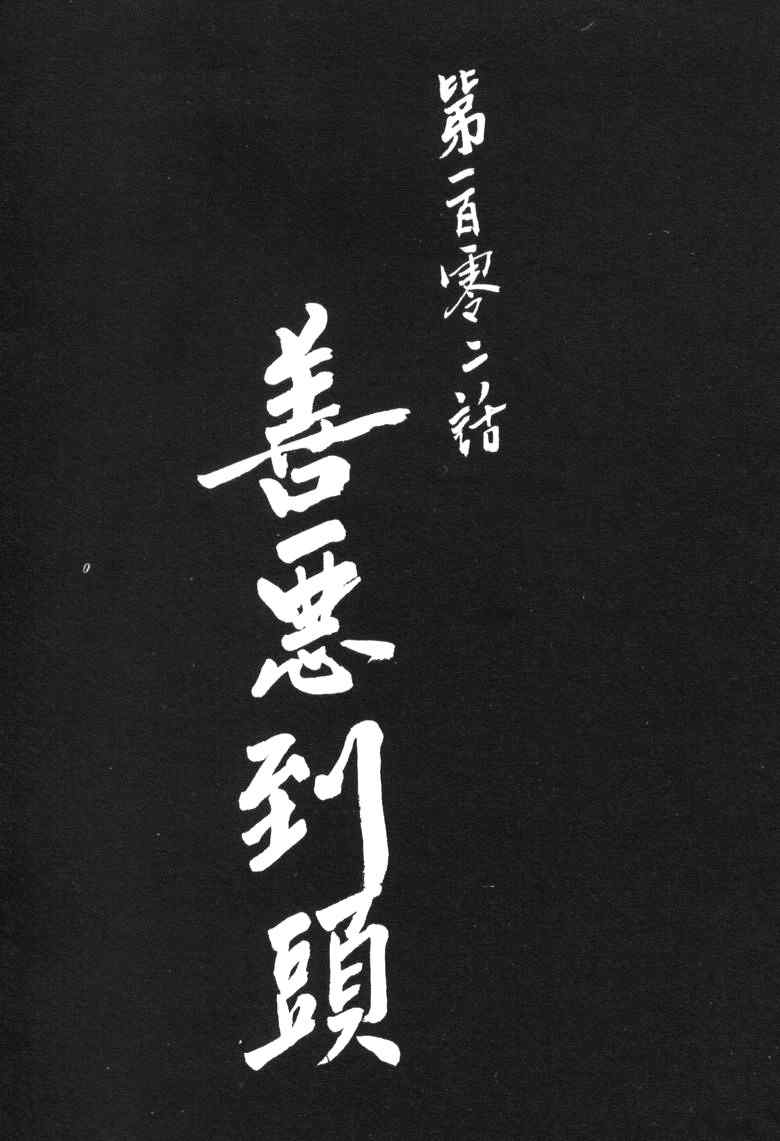 第一百零二話
善惡到頭